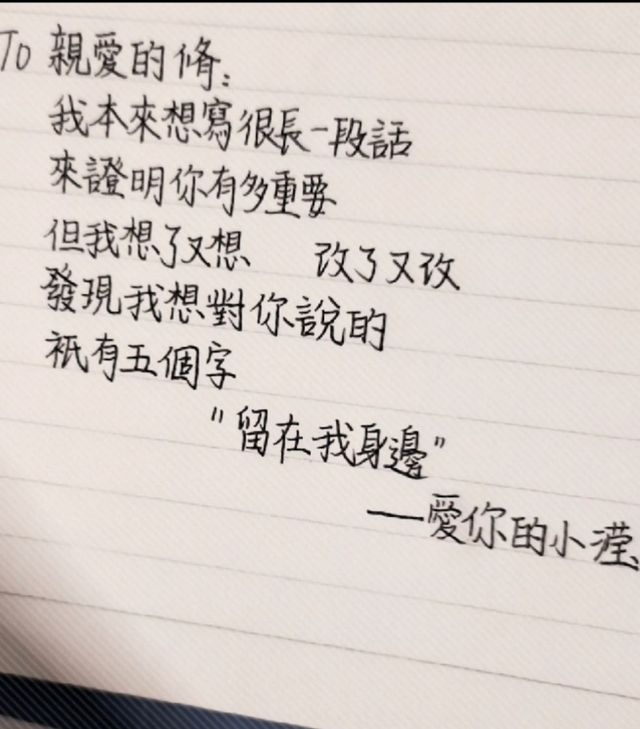 To 親愛的脩:
我本來想寫很長一段話
來證明你有多重要
但我想了又想 改了又改
發現我想對你說的
衹有五個字
"留在我身邊"
——愛你的小瀅